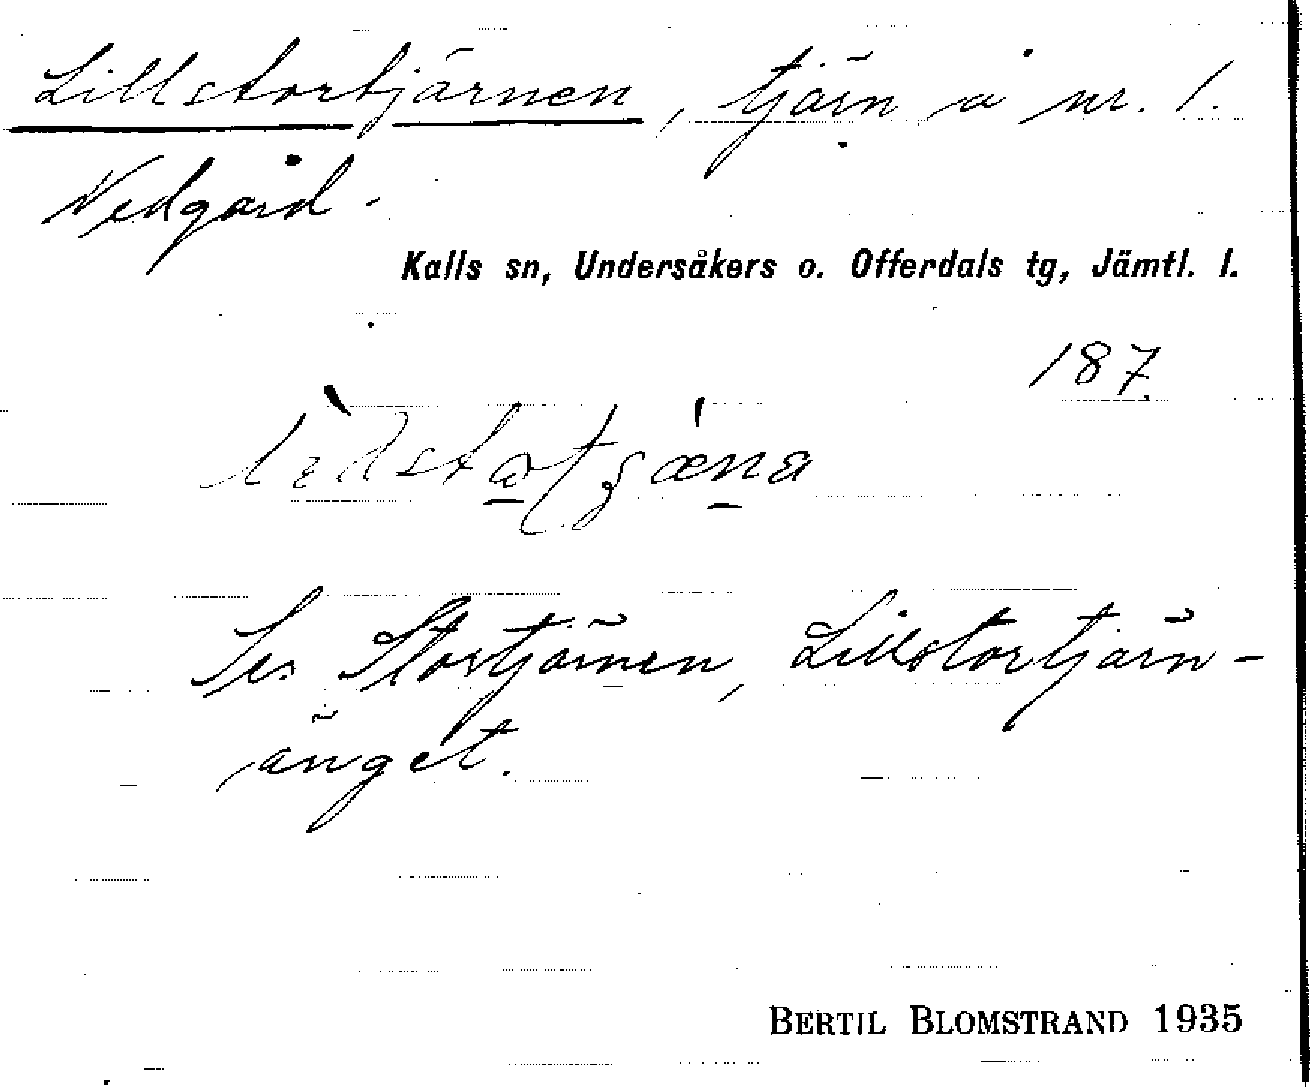 Lillstortjärnen, tjärn å nr. 1.
Nedgård.
Kalls sn, Undersåkers o. Offerdals tg, Jämtl. l.
187.
Se Stortjärnen, Lillstortjärn-
änget.
BERTIL BLOMSTRAND 1935